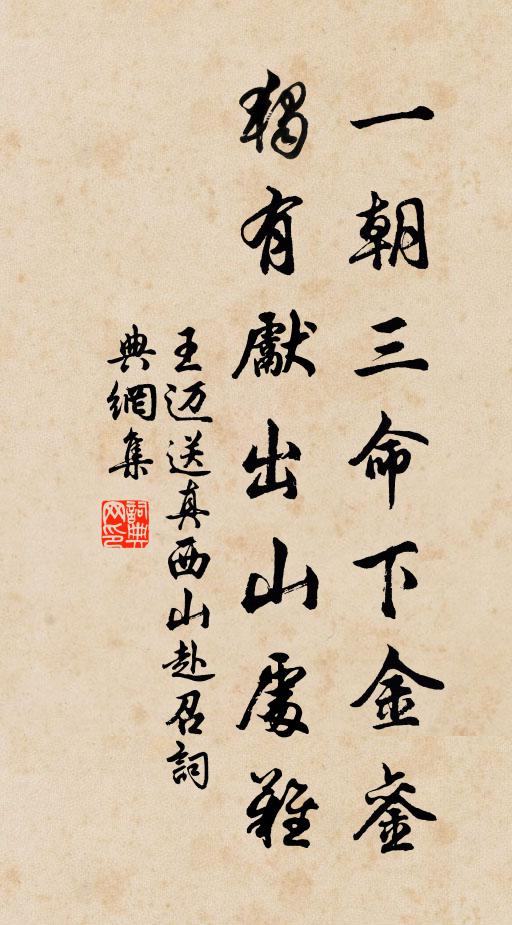 一朝三命下金銮
独有獻出山處難
王迈送真西山赴召詞
典網集
詞典网印